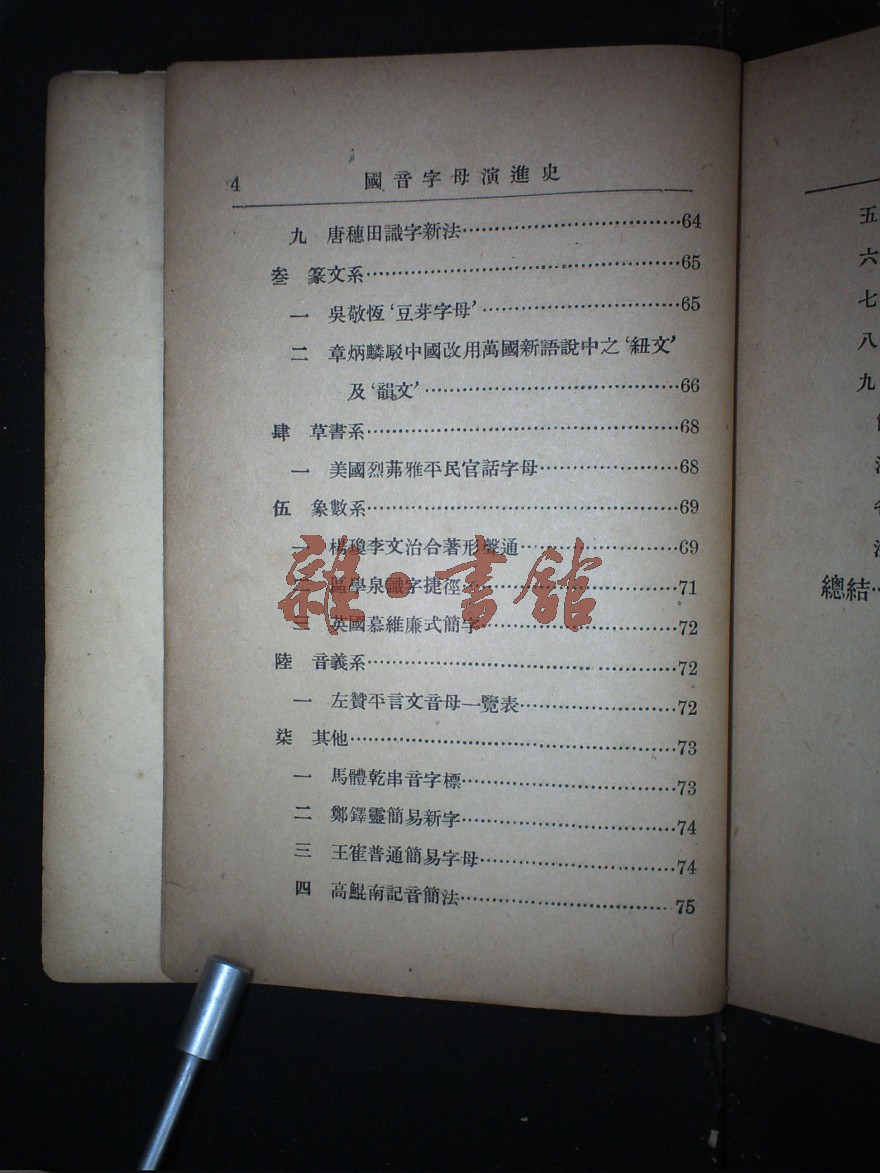 4 國音字母演進史
九 唐穗田識字新法……64
叁 篆文系……65
一 吳敬恆‘豆芽字母’……65
二 章炳麟駁中國改用萬國新語說中之‘紐文’
及‘韻文’……66
肆 草書系……68
一 美國烈茀雅平民官話字母……68
伍 象數系……69
一 楊瓊李文治合著形聲通……69
二 區學泉識字捷徑……71
三 英國慕維廉式簡字……72
陸 音義系……72
一 左贊平言文音母一覽表……72
柒 其他……73
一 馬體乾串音字標……73
二 鄭鐸靈簡易新字……74
三 王崔普通簡易字母……74
四 高鯤南記音簡法……75
雜·書館
五
六
七
八
九
總結…